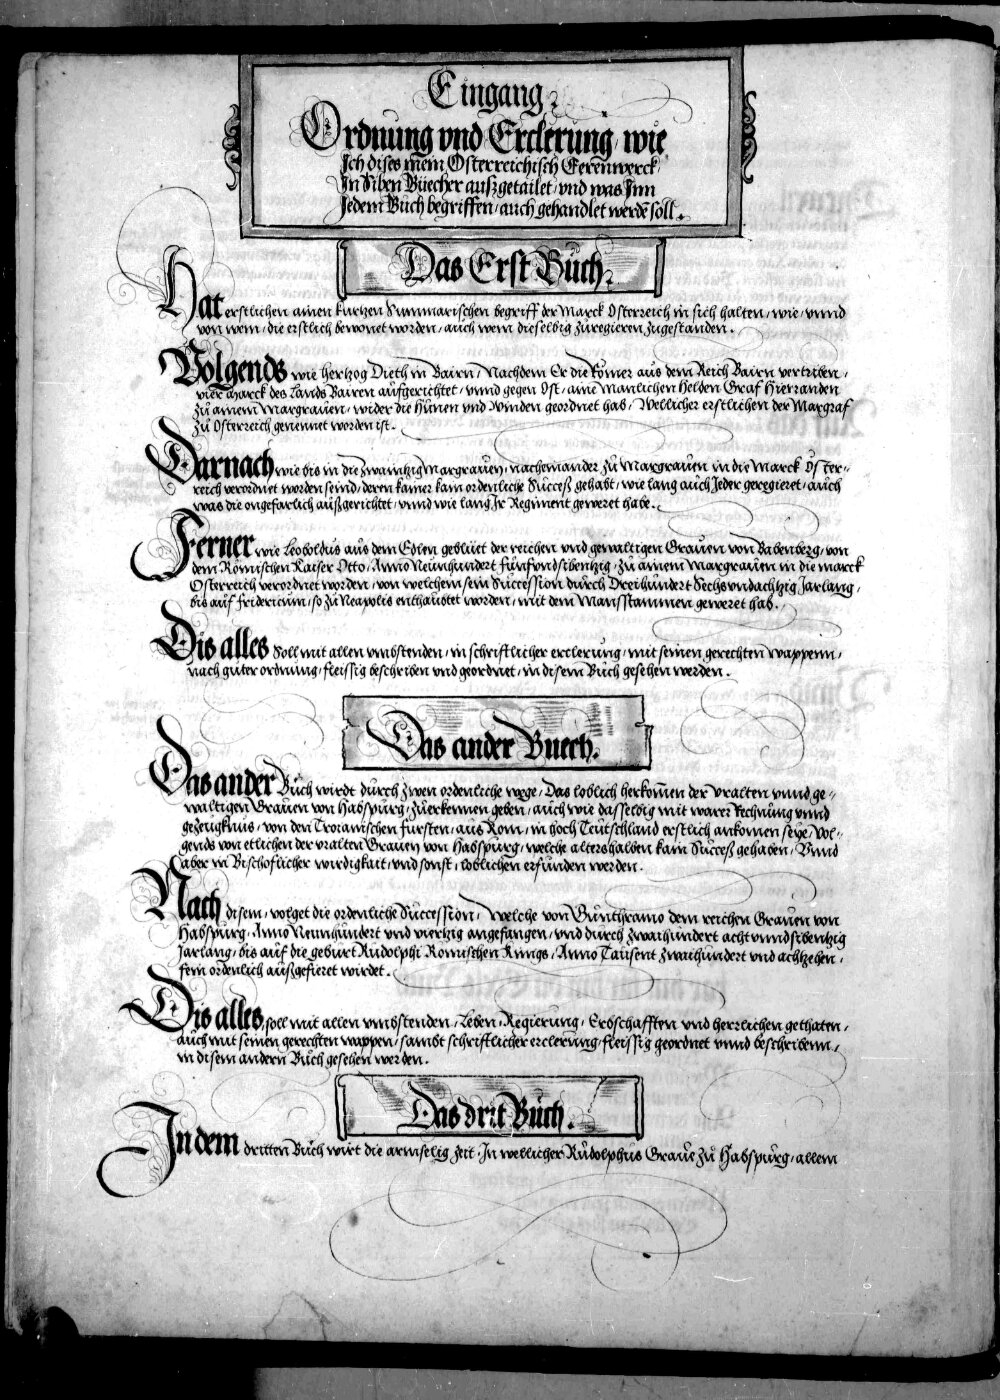 Eingang
Ordnung vnd Erclerung, wie
Ich dises mein Osterreichisch Eerenwerck
In Siben Büecher außgetailet, vnd was Inn
Jedem Buch begriffen, auch gehandlet werdē soll.
Das Erst Buch.
Hat erstlichen ainen kurtzen Summarischen begriff der Marck Osterreich in sich halten, wie, vnnd
von wem, die erstlich bewonet worden, auch wem dieselbig zůregieren zugestanden.
Volgends wie hertzog Dieth in Bairn, Nachdem Er die Römer aus dem Reich Bairn vertriben,
vier Marck des Lands Bairen aufgerichtet, vnnd gegen Ost, aine Manlichen Helden Graf
zů ainem Margrauen, wider die Hünen vnd Winden geordnet hab, Wellicher erstlichen der Margraf
zů Osterreich genennet worden ist.
Darnach wie bis in die zwaintzig Margrauen, nacheinander zů Margrauen in die Marck Oster-
reich verordnet worden seind, deren kainer kain ordenliche Succeß gehabt, wie lang auch Jeder geregieret, auch
was die ongefarlich außgerichtet, vnnd wie lang Ir Regiment geweret habe.
Ferner wie Leopoldus aus dem Edlen geblüet der reichen vnd gewaltigen Grauen von Babenberg, von
dem Römischen Kaiser Otto, Anno Neunhundert fünfundsibentzig, zů ainem Margrauen in die marck
Osterreich verordnet worden, von welchem sein Succession durch Dreihundert Sechsvndachtzig Jarlang,
bis auf Fridericum, so zů Neapolis enthaubtet worden, mit dem Mansstammen geweret hab.
Dis alles Soll mit allen vmbstenden, in schriftlicher erclerung, mit seinen gerechten wappenn,
nach guter ordnung, fleissig beschriben vnd geordnet, in disem Buch gesehen werden.
Das ander Buech.
Das ander Buch wirdt durch zwen ordenliche wege, Das loblich herkom̄en der vralten vnnd ge-
waltigen Grauen von Habspurg, zůerkennen geben, auch wie dasselbig mit warer Rechnung vnnd
gezeugknus, von den Troianischen fürsten, aus Rom, in hoch Teutschland erstlich ankomen seye, Vol-
gends von etlichen der vralten Grauen von Habspurg, welche altershalben kain Succeß gehaben, Vnnd
aber in Bischoflicher wirdigkait, vnd sonst, loblichen erfunden werden.
Nach disem, volget die ordenliche Succession, Welche von Gunthramo dem reichen Grauen von
Habspurg, Anno Neunhundert vnd viertzig angefangen, vnd durch zwaihundert acht vnndsibentzig
Jarlang, bis auf die geburt Rudolphi Römischen Kunigs, Anno Tausent zwaihundert vnd achtzehen,
fein ordenlich außgefieret wirdet.
Dis alles, soll mit allen vmbstenden, Leben, Regierung, Erbschafften vnd herrlichen gethaten,
auch mit seinen gerechten wappen, sambt schriftlicher erclerung, fleissig geordnet vnnd beschribenn,
in disem andern Buch gesehen werden.
Das drit Buch.
In dem dritten Buch wirt die armselig zeit, In wellicher Rudolphus Graue zů Habspurg, allem